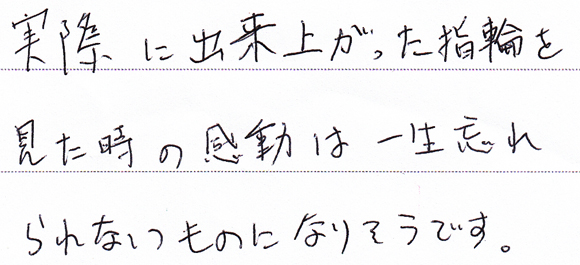 実際に出来上がった指輪を
見た時の感動は一生忘れ
られないものになりそうです。